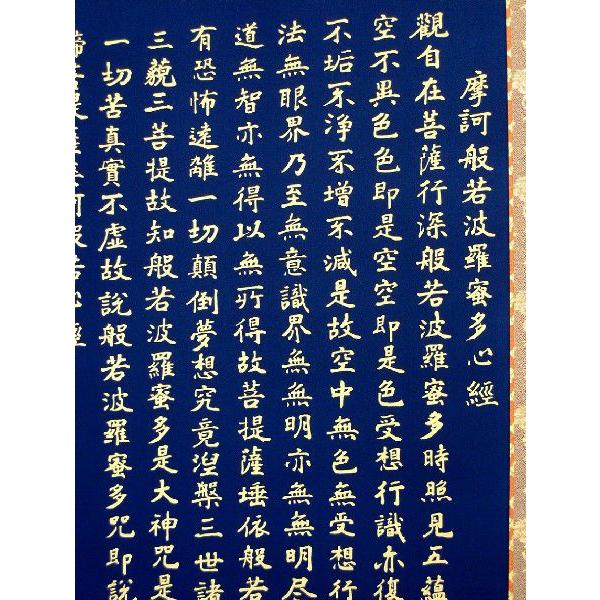 摩訶般若波羅蜜多心經
觀自在菩薩行深般若波羅蜜多時照見五蘊
空不異色色即是空空即是色受想行識亦復
不垢不淨不增不減是故空中無色無受想行
法無眼界乃至無意識界無無明亦無無明尽
道無智亦無得以無所得故菩提薩埵依般若
有恐怖遠離一切顛倒夢想究竟涅槃三世諸
三藐三菩提故知般若波羅蜜多是大神咒是
一切苦真實不虛故說般若波羅蜜多咒即說